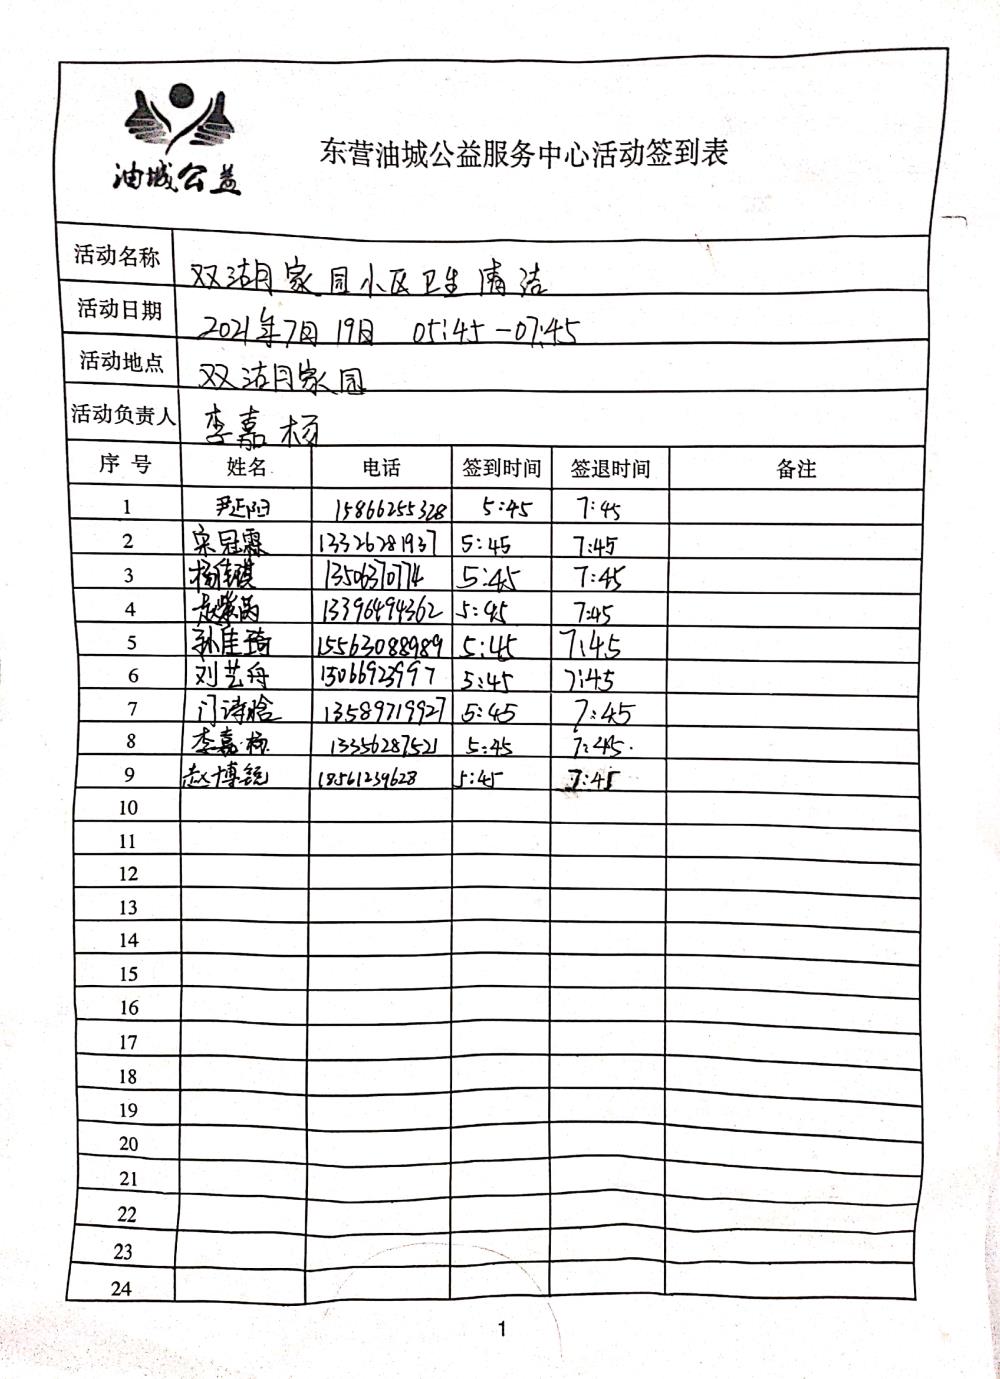 油城公益
东营油城公益服务中心活动签到表
活动名称 双湖家园小区卫生清洁
活动日期 2021年7月19日 05:45-07:45
活动地点 双湖家园
活动负责人 李嘉杨
序号 姓名 电话 签到时间 签退时间 备注
1 尹正阳 15866255328 5:45 7:45
2 宋冠霖 13326281937 5:45 7:45
3 杨佳骐 13506370774 5:45 7:45
4 13396494362 5:45 7:45
5 孙佳琦 15563088989 5:45 7:45
6 刘艺舟 15066923997 5:45 7:45
7 门诗晗 13589719927 5:45 7:45
8 李嘉杨 13356287521 5:45 7:45
9 赵博锐 18561239628 5:45 7:45
10
11
12
13
14
15
16
17
18
19
20
21
22
23
24
1